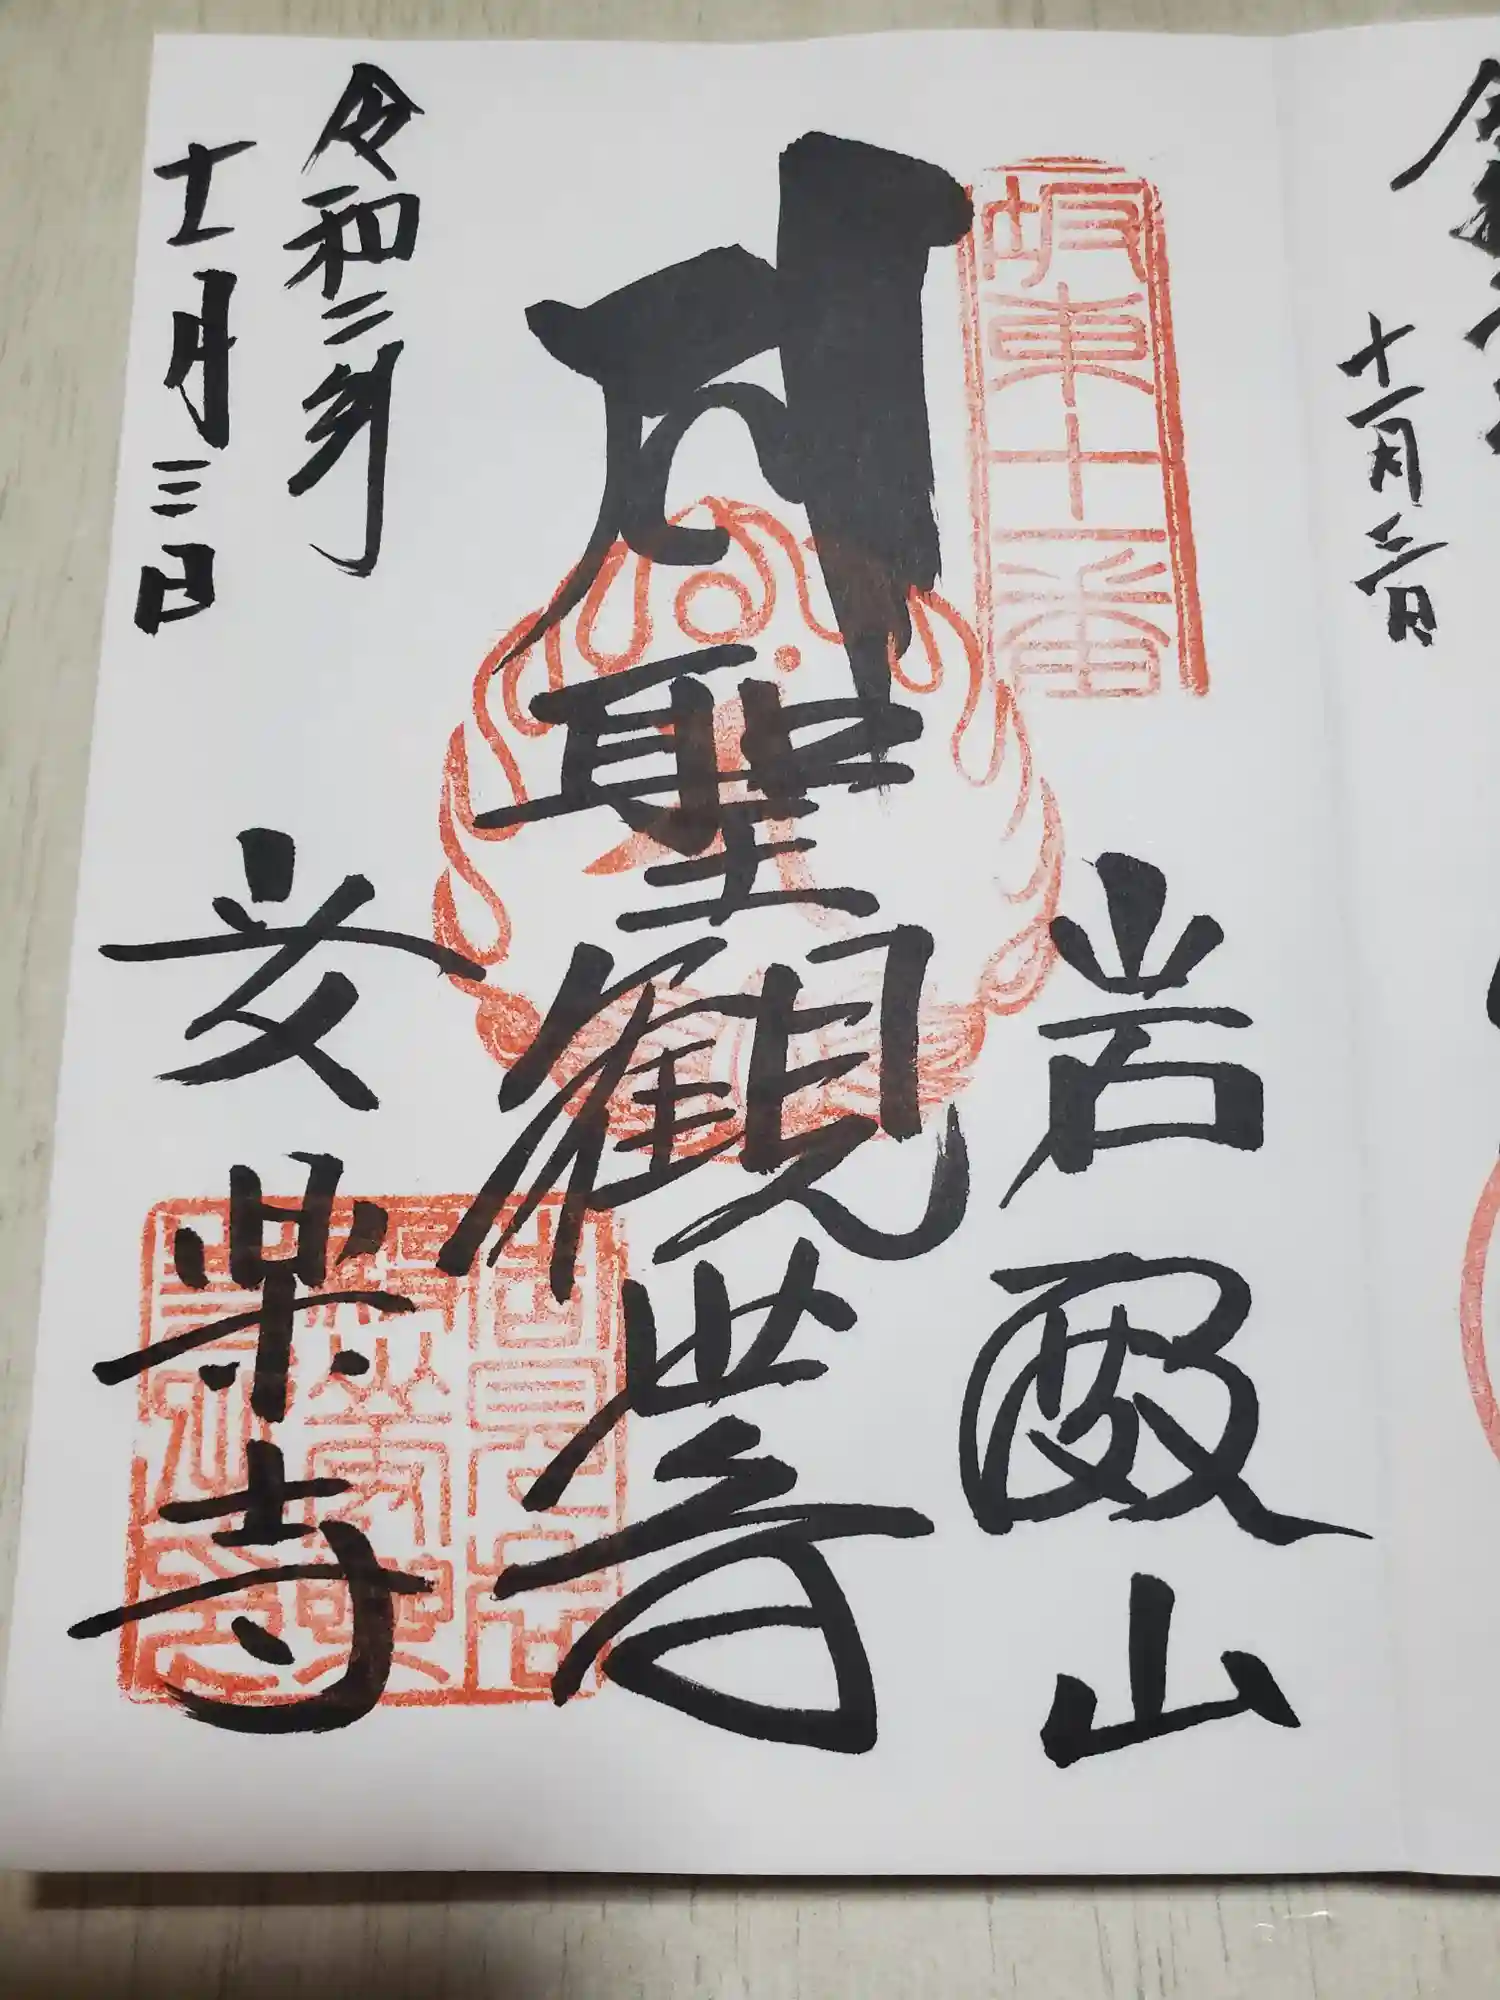 十一月三日
坂東十一番
岩殿山
聖観世音
令和二年
十一月三日
安楽寺